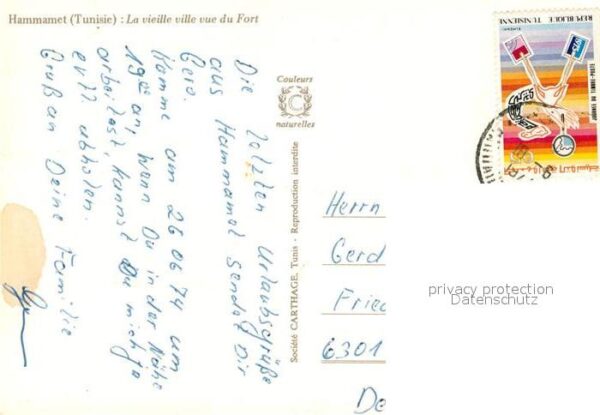 Hammamet (Tunisie) : La vieille ville vue du Fort
Die letzten Urlaubsgrüße
aus Hammamet sendet Dir
Gero.
Komme am 26.06.74 um
19²⁰ an, wenn Du in der Nähe
arbeitest, kannst Du mich ja
evtl abholen.
Gruß an Deine Familie
Couleurs
C
naturelles
Société CARTHAGE, Tunis - Reproduction interdite
REPUBLIQUE TUNISIENNE
JOURNEE DU TIMBRE-POSTE
Herrn
Gerd
Fried
6301
De
privacy protection
Datenschutz